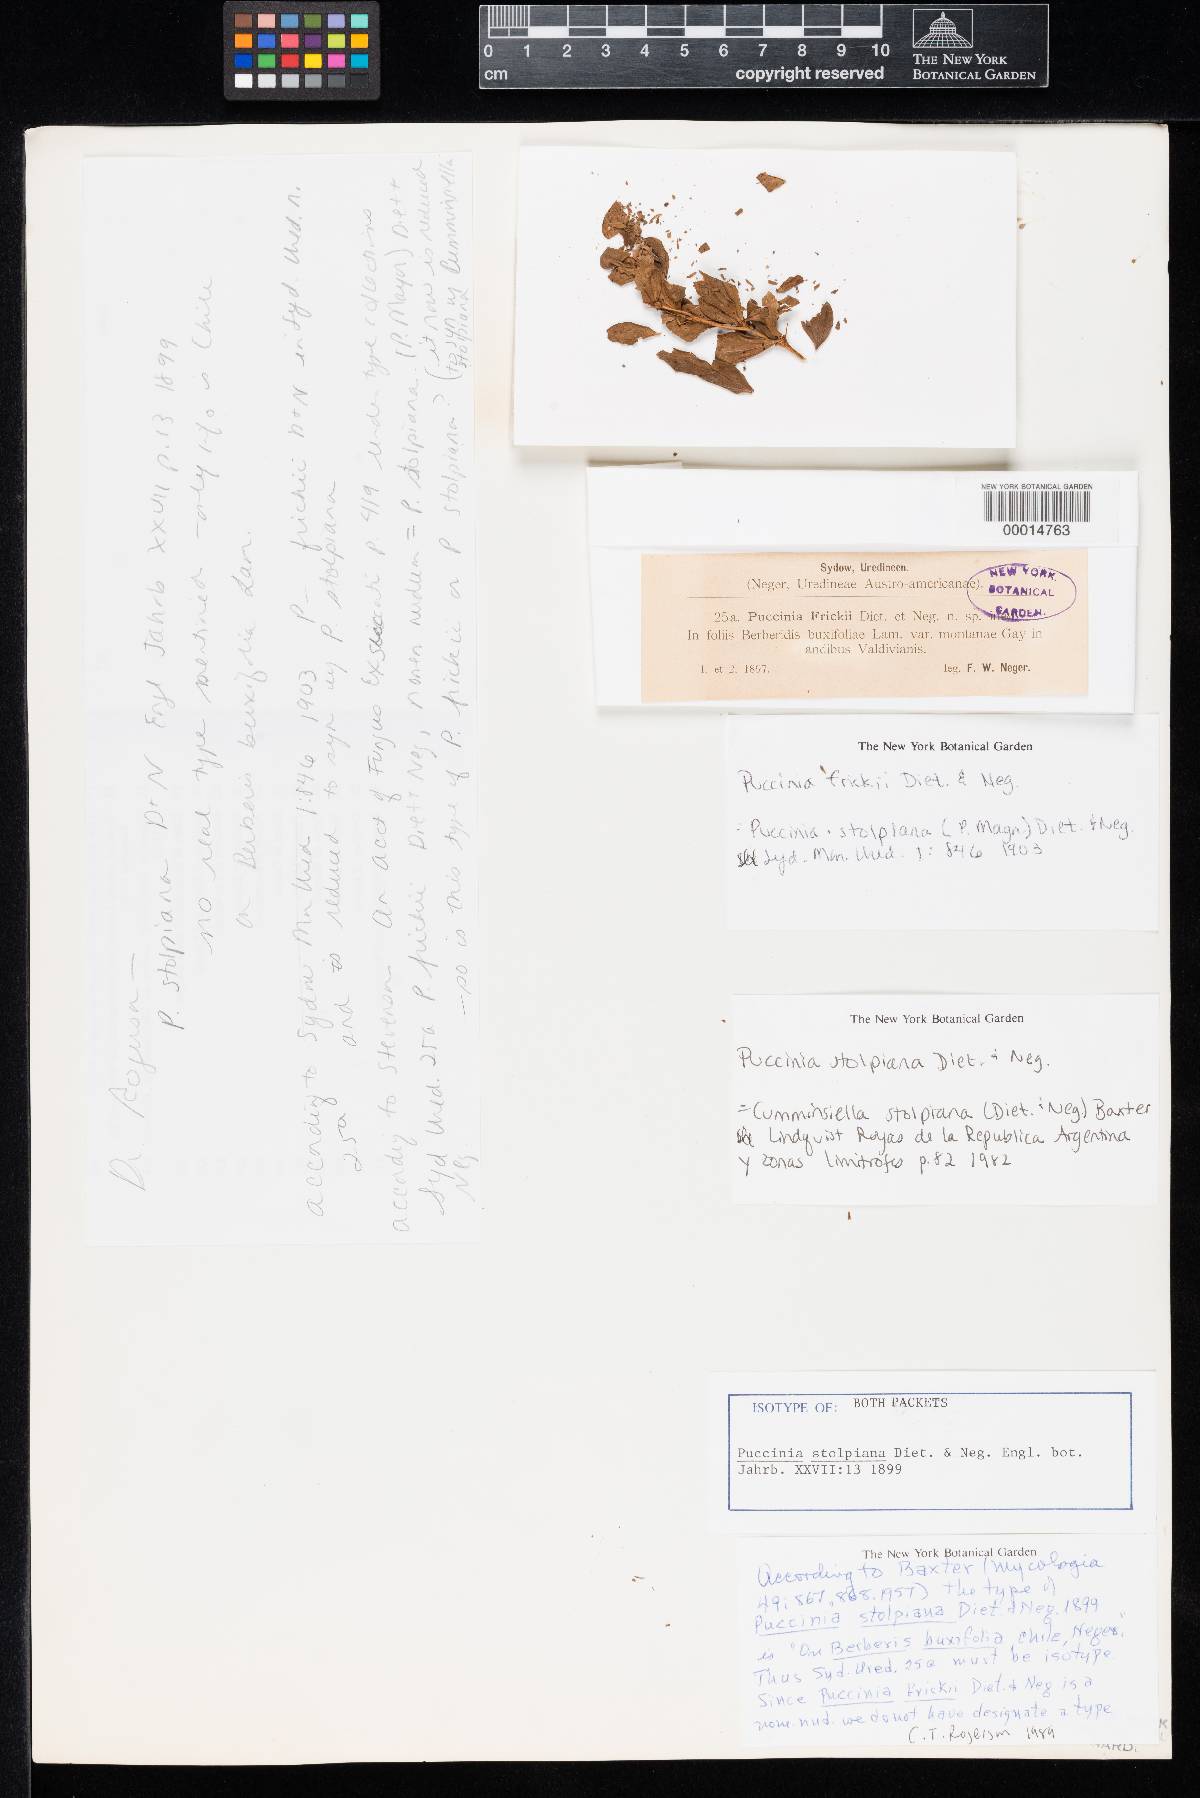 0 1 2 3 4 5 6 7 8 9 10
cm
copyright reserved
THE NEW YORK
BOTANICAL GARDEN
Dr. Rogerson —
P. stolpiana D+N Engl Jahrb XXVII p.13 1899
no real type mentioned - only info is Chile
on Berberis buxifolia Lam.
according to Sydow Mon Ured 1:846 1903 P. frickii D+N in Syd. Ured. n.
25a and is reduced to syn by P. stolpiana
according to Stevenson An Acct of Fungus Exsiccati p. 419 under type collections
Syd Ured. 25a P. frickii Diet + Neg, nomen nudum = P. stolpiana (P. Magn) Diet +
Neg
— so is this type of P. frickii or P stolpiana? (it now is reduced
to syn by Cumminsiella
stolpiana)
NEW YORK BOTANICAL GARDEN
00014763
Sydow, Uredineen.
(Neger, Uredineae Austro-americanae).
NEW YORK
BOTANICAL
GARDEN.
25a. Puccinia Frickii Diet. et Neg. n. sp.
In foliis Berberidis buxifoliae Lam. var. montanae Gay in
andibus Valdivianis.
1. et 2. 1897. leg. F. W. Neger.
The New York Botanical Garden
Puccinia frickii Diet. & Neg.
= Puccinia stolpiana (P. Magn.) Diet. & Neg.
Syd. Mon. Ured. 1: 846 1903
The New York Botanical Garden
Puccinia stolpiana Diet. & Neg.
= Cumminsiella stolpiana (Diet. & Neg) Baxter
Lindquist Royas de la Republica Argentina
y zonas limitrofes p.82 1982
ISOTYPE OF: BOTH PACKETS
Puccinia stolpiana Diet. & Neg. Engl. bot.
Jahrb. XXVII:13 1899
The New York Botanical Garden
According to Baxter (Mycologia
49: 867, 868. 1957) the type of
Puccinia stolpiana Diet. & Neg. 1899
is "On Berberis buxifolia Chile, Neger."
Thus Syd. Ured. 25a must be isotype.
Since Puccinia frickii Diet. & Neg is a
nom. nud. we do not have designate a type
C. T. Rogerson 1989